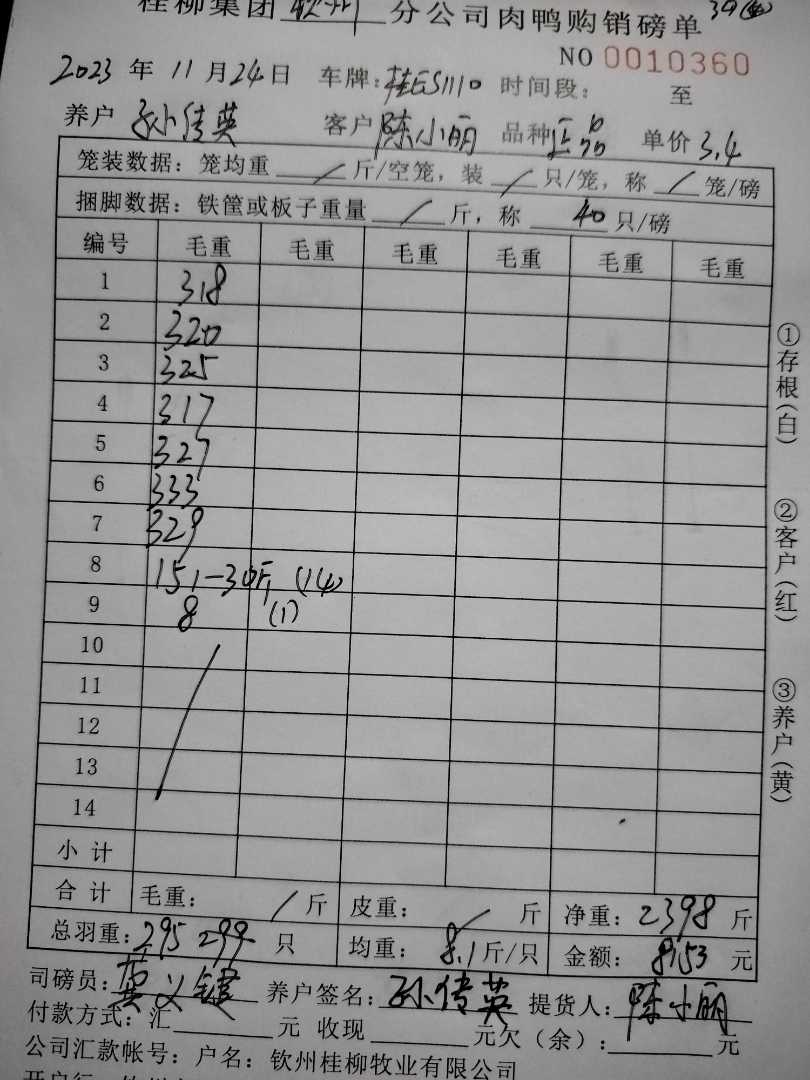 桂柳集团钦州分公司肉鸭购销磅单
NO 0010360
2023年11月24日 车牌:桂ES1110 时间段: 至
养户 孙传英 客户 陈小丽 品种 正品 单价 3.4
笼装数据:笼均重 / 斤/空笼,装 / 只/笼,称 / 笼/磅
捆脚数据:铁筐或板子重量 / 斤,称 40 只/磅
编号 毛重 毛重 毛重 毛重 毛重 毛重
1 318
2 320
3 325
4 317
5 327
6 333
7 329
8 151-30斤 (14)
9 8 (1)
10
11
12
13
14
小计
合计 毛重: / 斤 皮重: / 斤 净重: 2398 斤
总羽重: 295 299 只 均重: 8.1 斤/只 金额: 8153 元
司磅员: 黄义键 养户签名: 孙传英 提货人: 陈小丽
付款方式:汇 元 收现 元欠(余): 元
公司汇款帐号:户名:钦州桂柳牧业有限公司
①存根(白) ②客户(红) ③养户(黄)